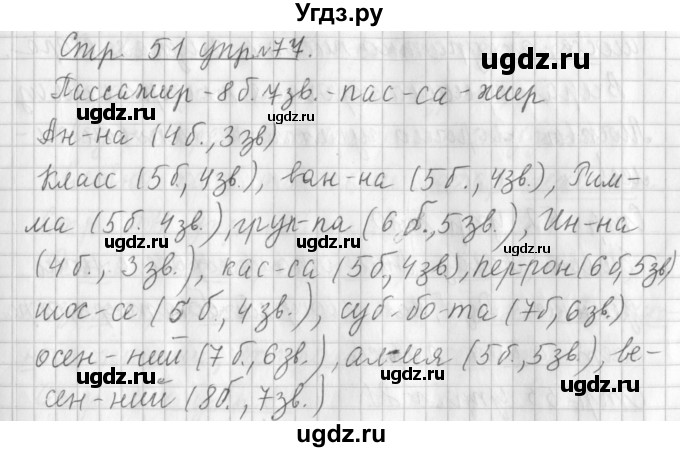 Угдз.ру
Стр. 51 упр.№77.
gdz.ru
Пассажир - 8б. 7зв. - пас-са-жир
gdz.ru
gdz.ru
Ан-на (4б., 3зв)
класс (5б., 4зв.), ван-на (5б., 4зв.), Рим-
gdz.ru
ма (5б. 4зв.), груп-па (6б., 5зв.), Ин-на
uwgdz.ru
uwgdz.ru
(4б., 3зв.), кас-са (5б, 4зв), пер-рон (6б, 5зв)
uwgdz.ru
шос-се (5б., 4зв.), суб-бо-та (7б, 6зв.)
uwgdz.ru
осен-ний (7б., 6зв.), аллея (5б., 5зв.), ве-
uwgdz.ru
uwgdz.ru
сен-ний (8б., 7зв.)
uwgdz.ru